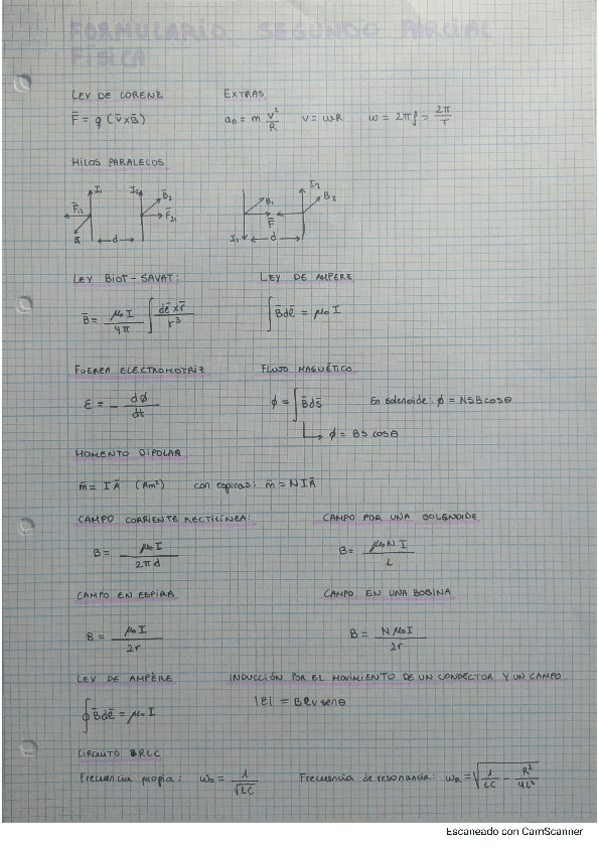 FORMULARIO SEGUNDO PARCIAL
FÍSICA
LEY DE LORENZ
EXTRAS
F̄ = q (v̄ x B̄)
aₙ = m v²/R v = ωR ω = 2πf = 2π/T
HILOS PARALELOS
I₁ I₂ B̄₂ F̄₂₁ d
I₂ B₁ B₂ F̄ I₁ d
LEY BIOT-SAVAT:
LEY DE AMPERE
B̄ = μ₀I/4π ∫ dē x r̄/r³
∫ B̄dē = μ₀ I
FUERZA ELECTROMOTRIZ
FLUJO MAGNÉTICO
ε = - dϕ/dt
ϕ = ∫ B̄ds̄ En solenoide: ϕ = NSBcosθ
ϕ = BS cosθ
MOMENTO DIPOLAR
m̄ = I Ā (Am²) con espiras: m̄ = N I Ā
CAMPO CORRIENTE RECTILÍNEA:
CAMPO POR UNA SOLENOIDE
B = μ₀I/2πd
B = μ₀N I/L
CAMPO EN ESPIRA
CAMPO EN UNA BOBINA
B = μ₀I/2r
B = Nμ₀I/2r
LEY DE AMPÈRE
INDUCCIÓN POR EL MOVIMIENTO DE UN CONDECTOR Y UN CAMPO
∮ B̄dē = μ₀ I
|ε| = Bℓv senθ
CIRCUITO RLC
Frecuencia propia: ω₀ = 1/√LC Frecuencia de resonancia: ω_R = √(1/LC - R²/4L²)
Escaneado con CamScanner